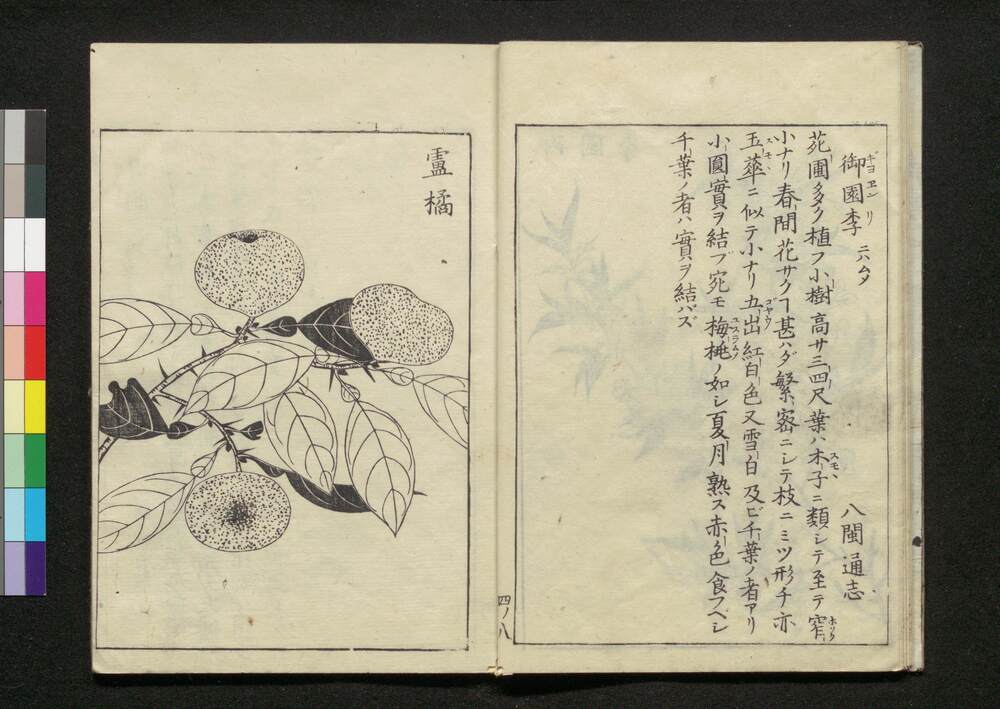 御園李 ニハムメ 八閩通志
ギヨヱン リ
苑圃多ク植フ小樹高サ三四尺葉ハ木子ニ類シテ至テ窄
スモヽ
ホソク
小ナリ春間花サクヿ甚ハダ繁密ニシテ枝ニミツ形チ亦
玉蘂ニ似テ小ナリ五出紅白色又雪白及ビ千葉ノ者アリ
ゴヤウ
小圓實ヲ結ブ宛モ梅桃ノ如シ夏月熟ス赤色食フベシ
ユスラムメ
千葉ノ者ハ實ヲ結バズ
四ノ八
盧橘